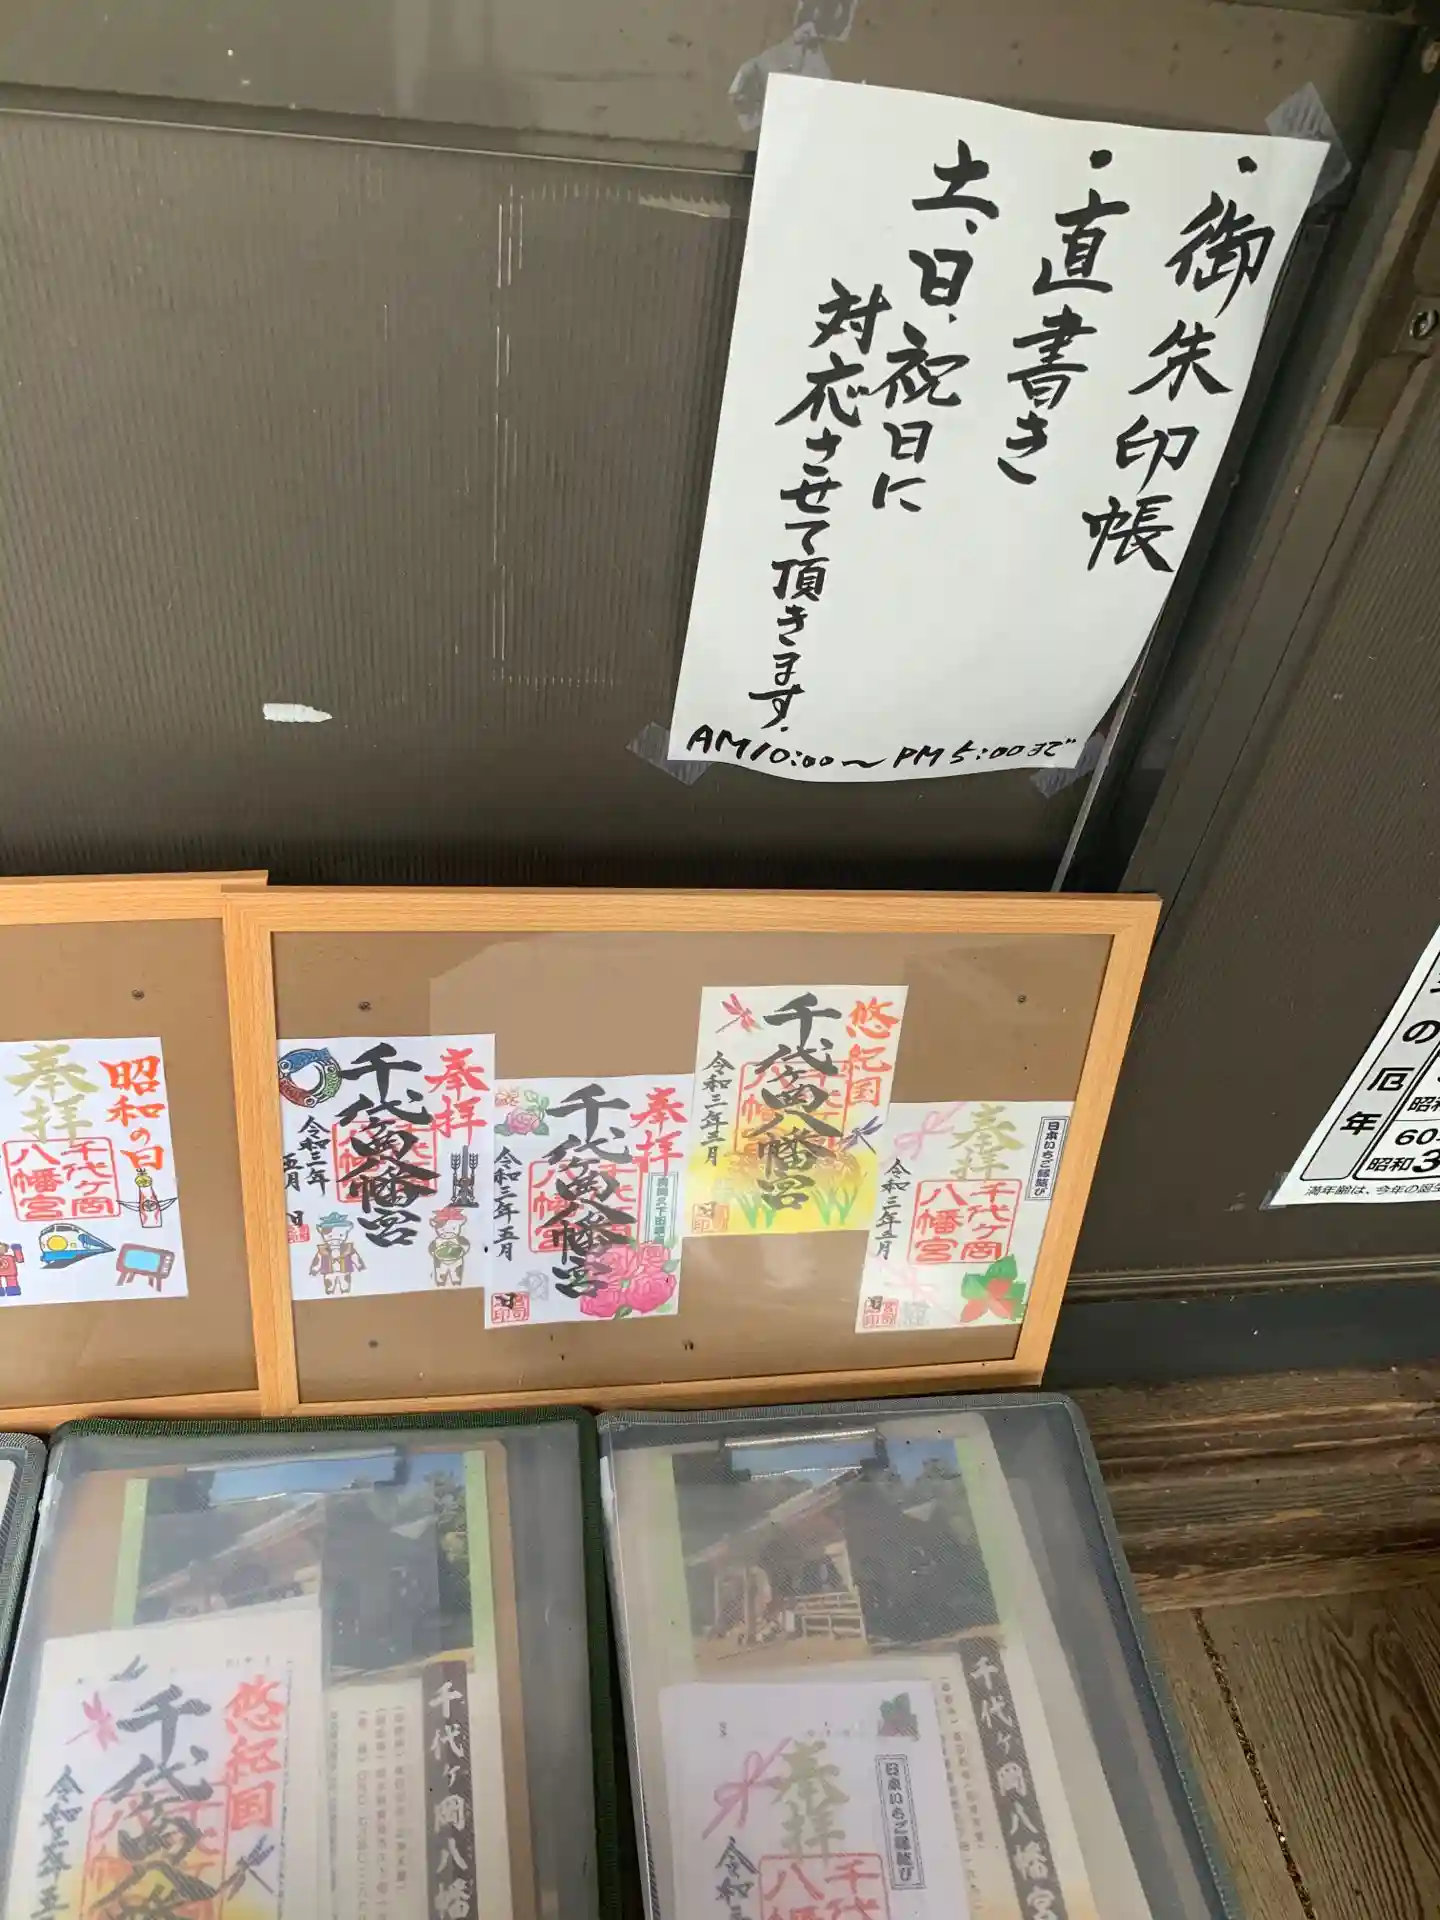 ・御朱印帳
・直書き
土、日、祝日に
対応させて頂きます.
AM10:00〜PM5:00まで
昭和の日
奉拝
千代ヶ岡
八幡宮
奉拝
千代ヶ岡八幡宮
令和三年
五月
日
奉拝
千代ヶ岡八幡宮
令和三年五月
日
悠紀国
千代ヶ岡八幡宮
令和三年三月
日
日本いちご縁結び
奉拝
千代ヶ岡
八幡宮
令和三年五月
日
の厄年
昭和
60
昭和3
満年齢は、今年の誕生
千代ヶ岡八幡
悠紀国
千代ヶ岡八
令和三年五
千代ヶ岡八幡宮
日本いちご縁結び
奉拝
千代
八幡
令和三